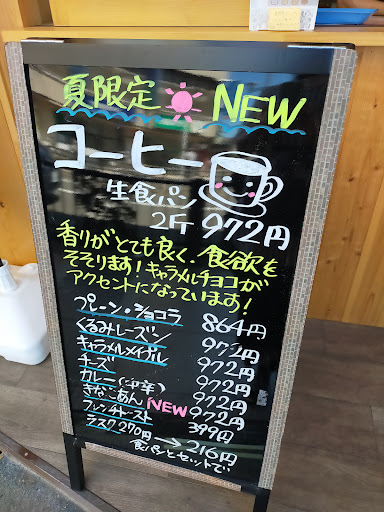 夏限定 NEW
コーヒー
生食パン
2斤 972円
香りがとても良く、食欲を
そそります!キャラメルチョコが
アクセントになっています!
プレーン・ショコラ 864円
くるみレーズン 972円
キャラメルメイプル 972円
チーズ 972円
カレー(中辛) 972円
きなこあん NEW 972円
フレンチトースト 399円
ラスク 270円 → 216円
食パンとセットで